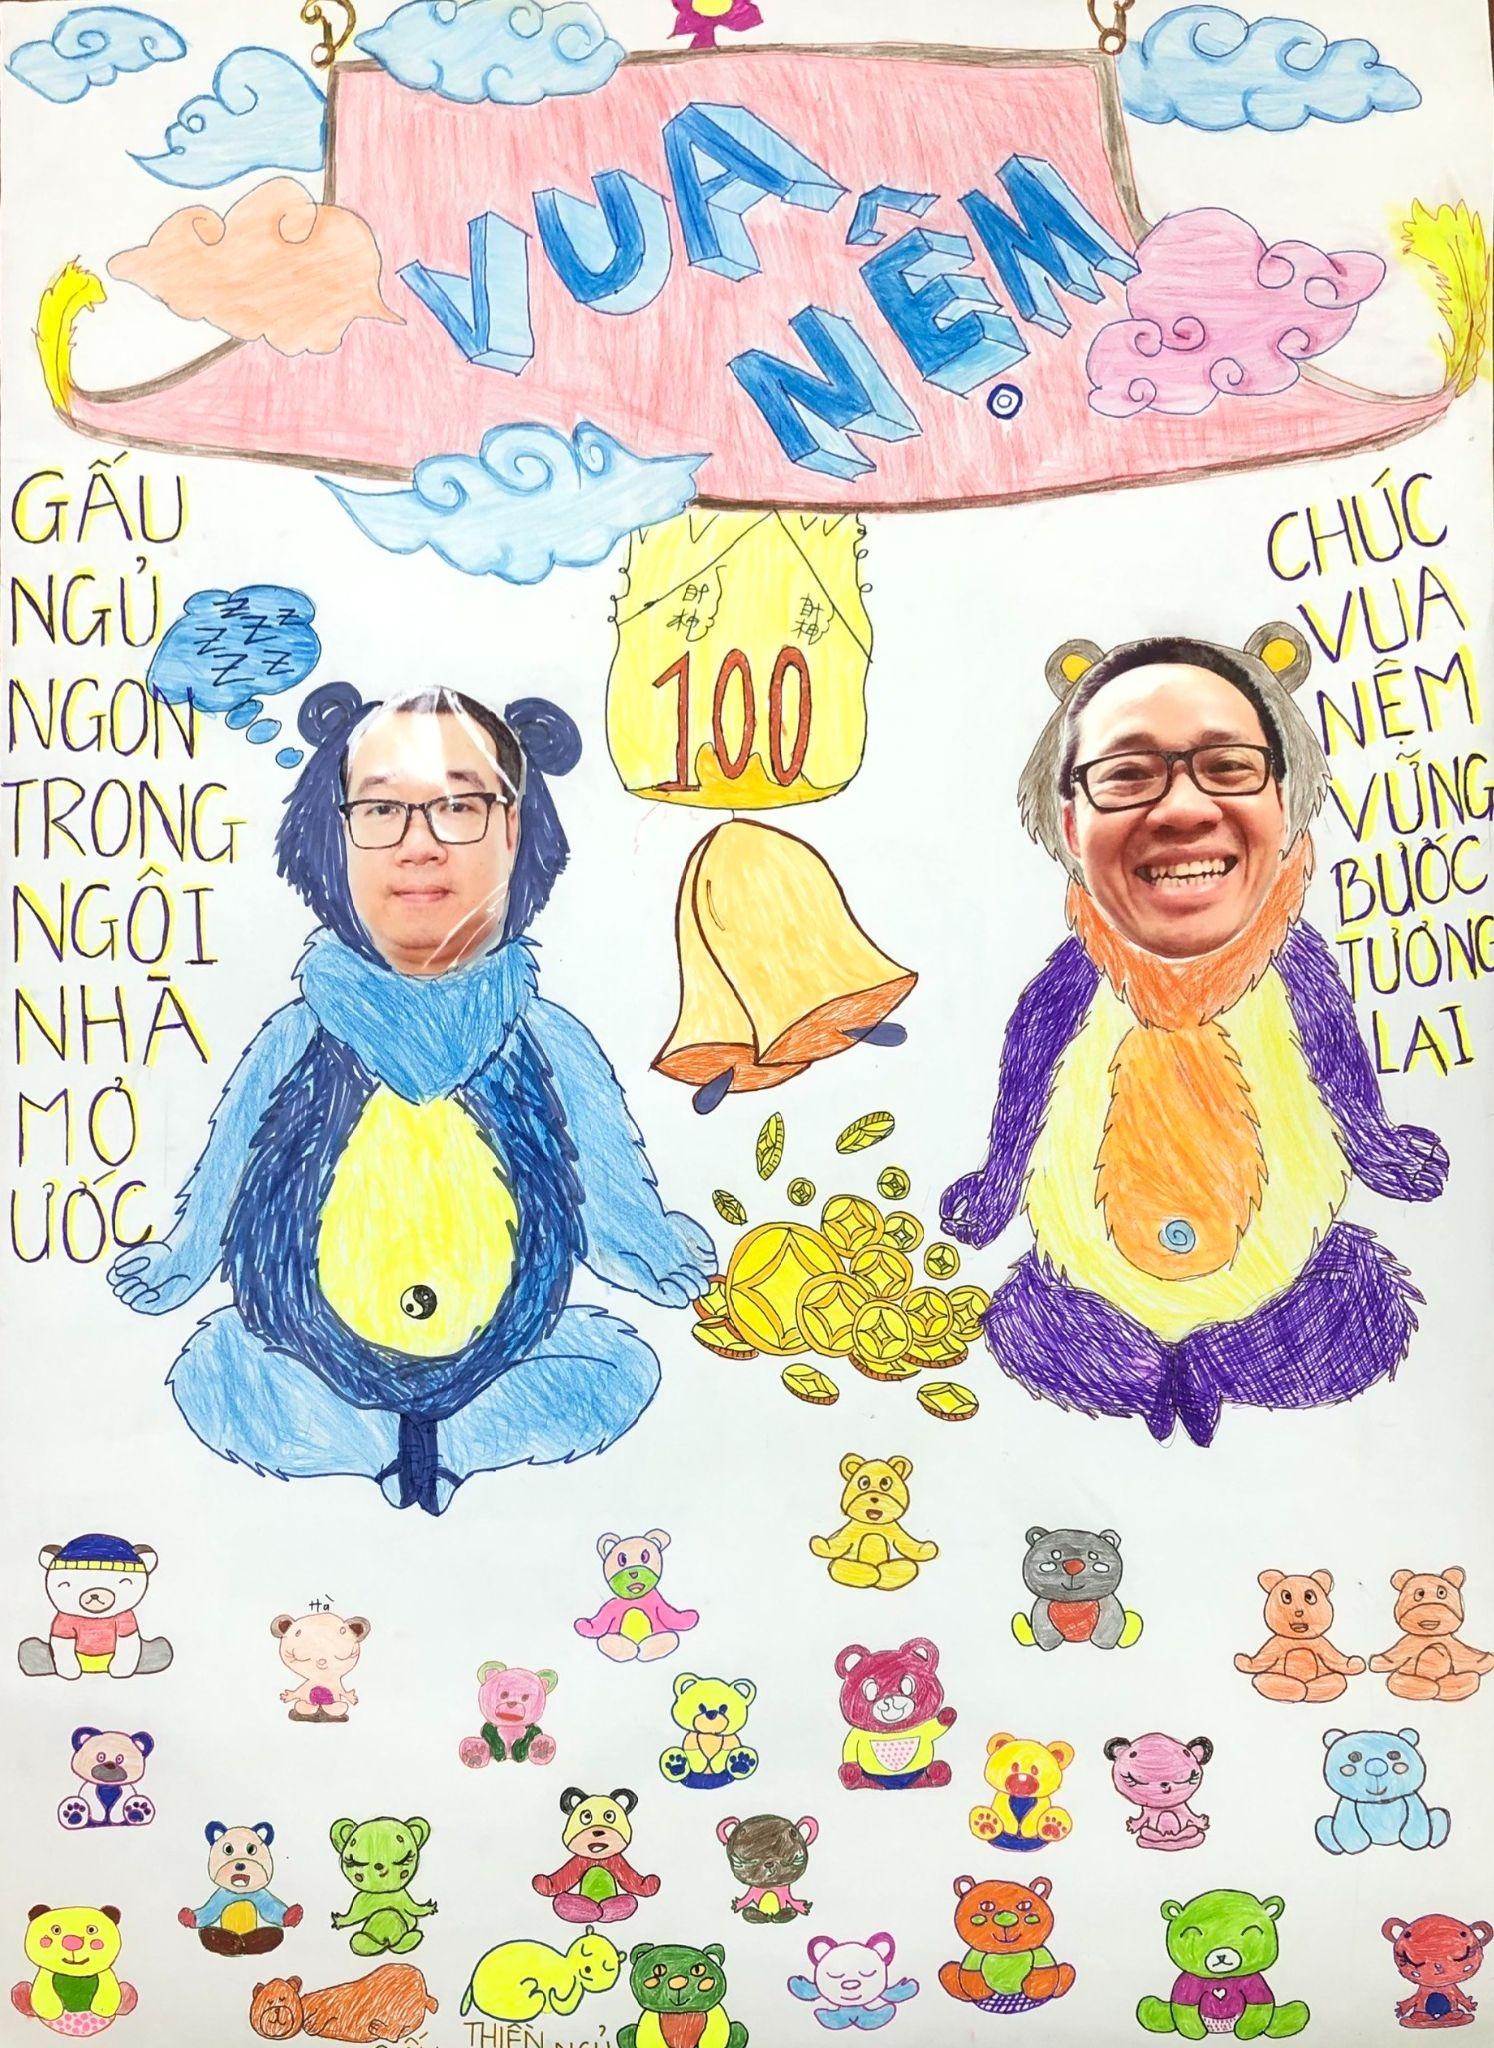 VUA
NỆM
GẤU
NGỦ
NGON
TRONG
NGÔI
NHÀ
MƠ
ƯỚC
Z Z Z
Z Z Z
Z Z
財神
財神
100
CHÚC
VUA
NỆM
VỮNG
BƯỚC
TƯƠNG
LAI
Hà
THIỀN
NGỦ